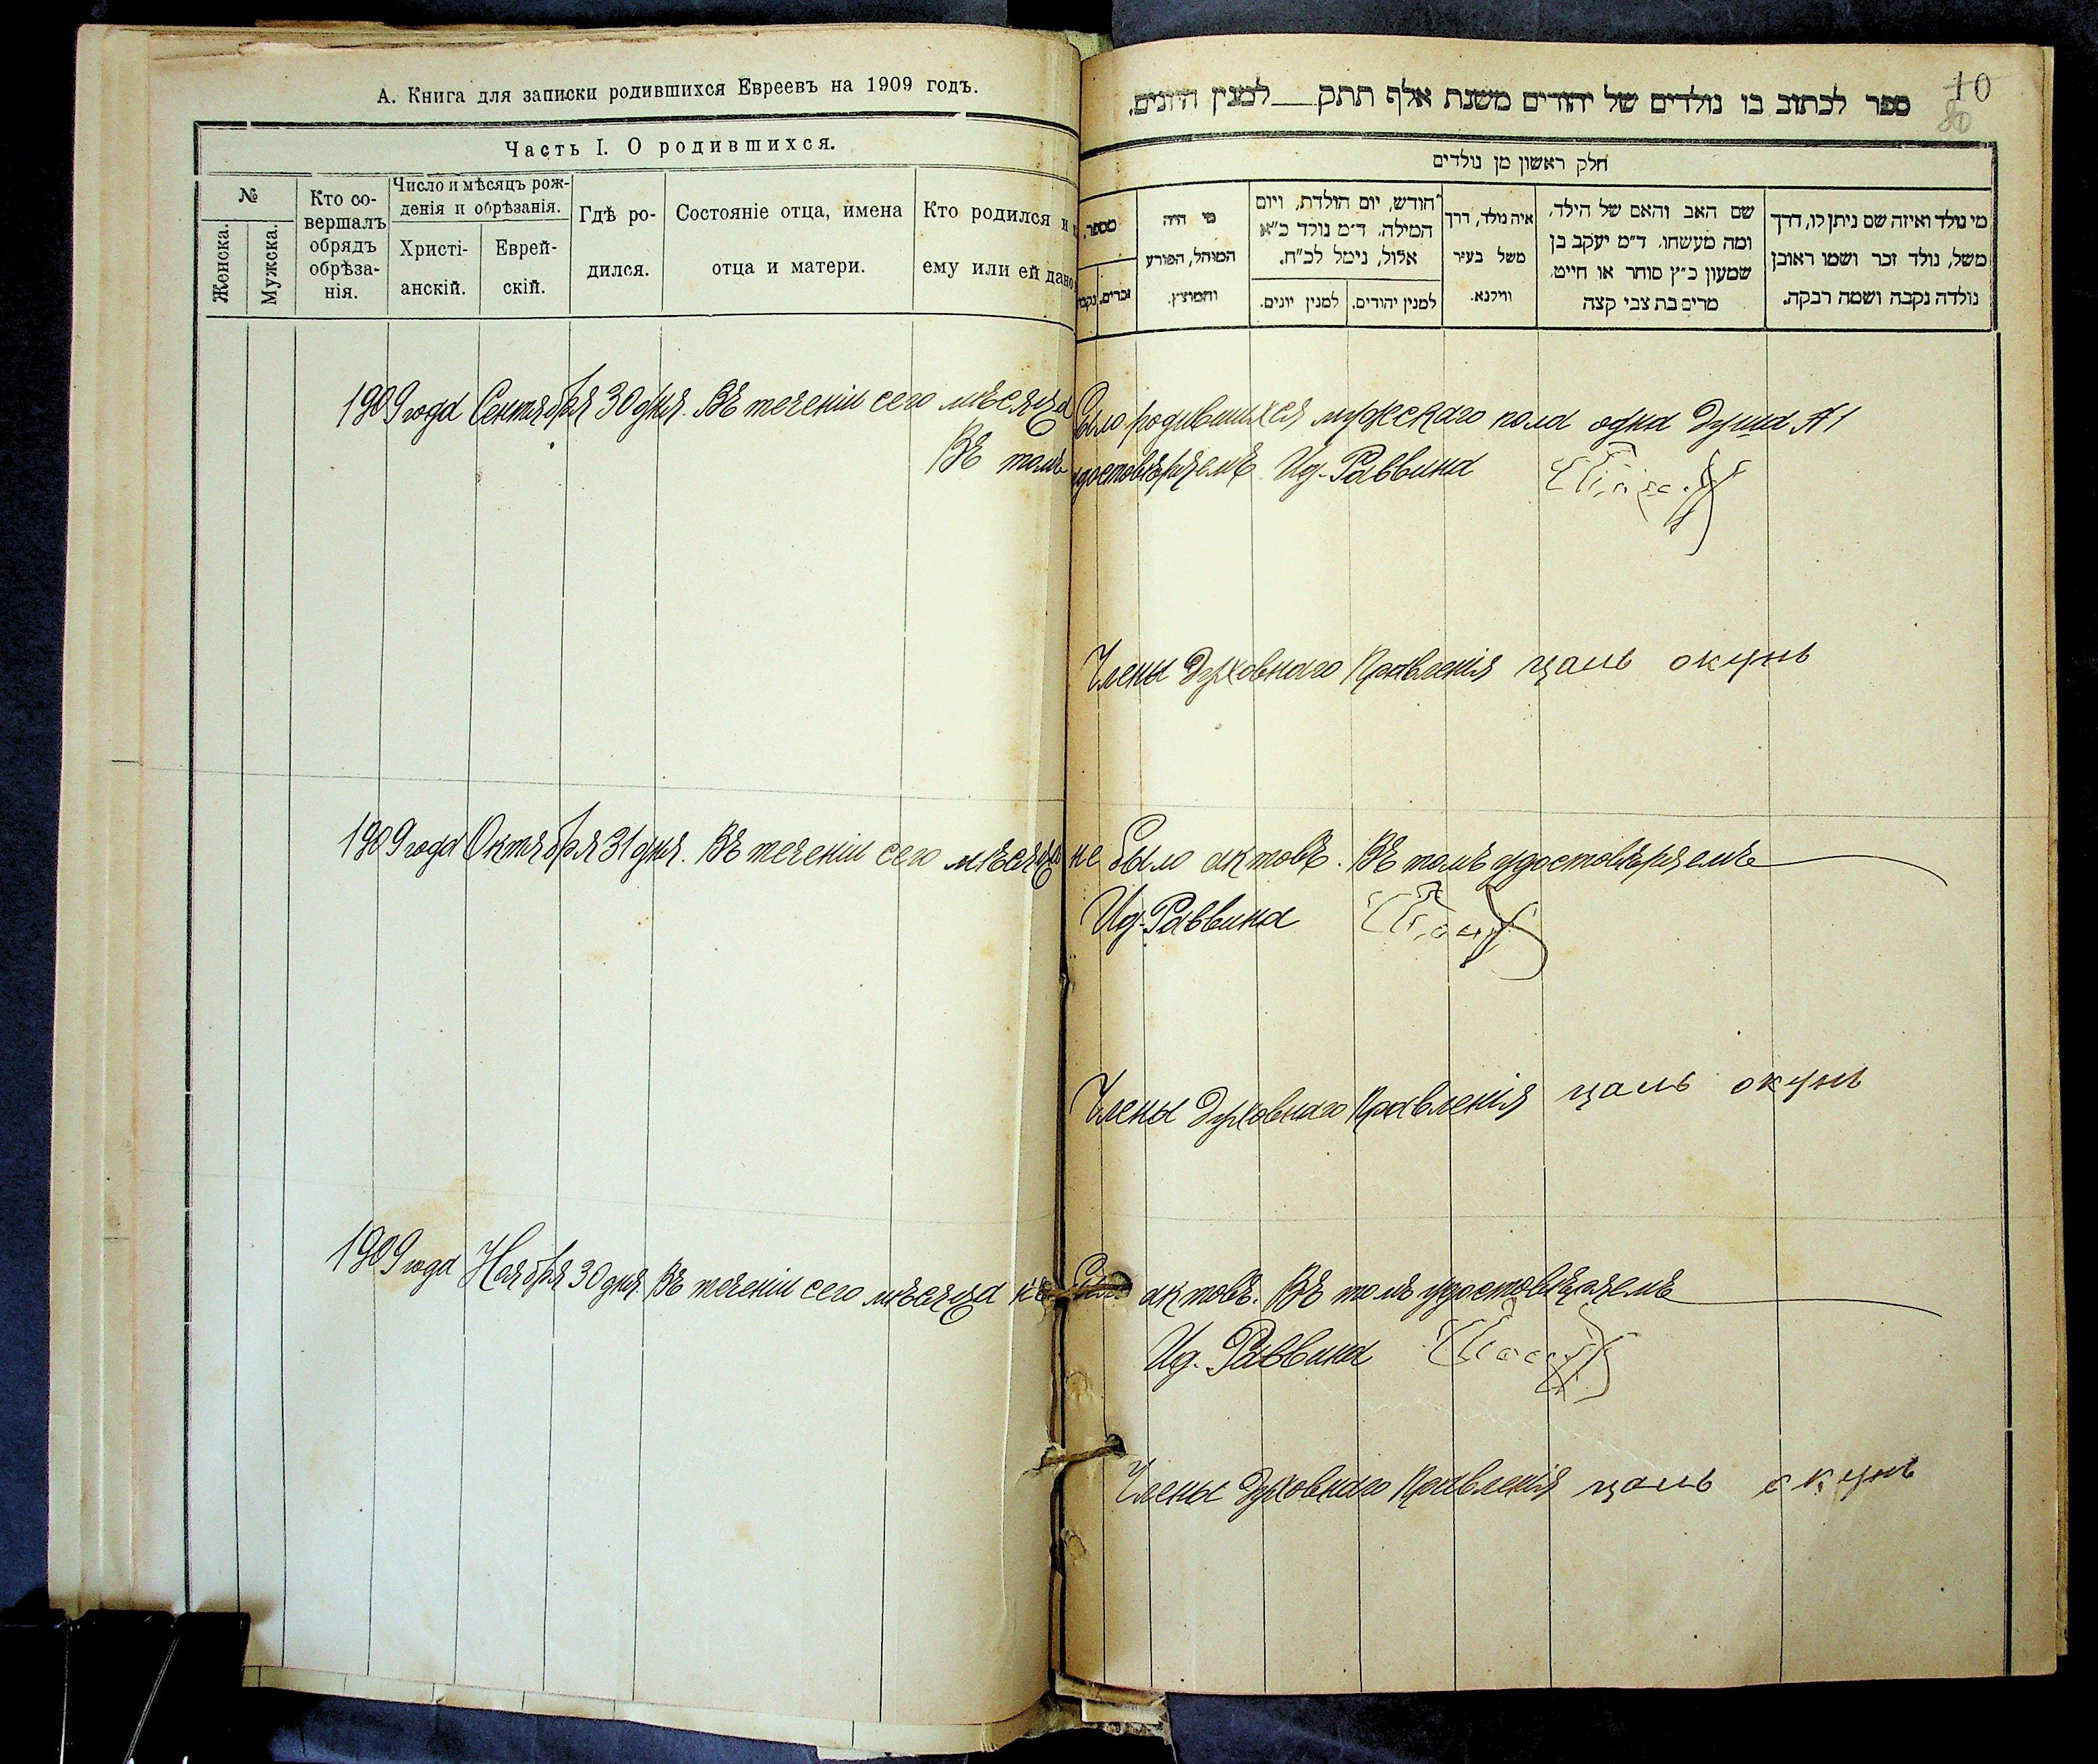 А. Книга для записки родившихся Евреевъ на 1909 годъ.
Часть I. О родившихся.
№
Женска.
Мужска.
Кто со-
вершалъ
обрядъ
обрѣза-
нія.
Число и мѣсяцъ рож-
денія и обрѣзанія.
Христі-
анскій.
Еврей-
скій.
Гдѣ ро-
дился.
Состояніе отца, имена
отца и матери.
Кто родился и
ему или ей дано
10
ספר לכתוב בו נולדים של יהודים משנת אלף תתק למנין היונים.
חלק ראשון מן נולדים
מי נולד ואיזה שם ניתן לו, דרך
משל, נולד זכר ושמו ראובן
נולדה נקבה ושמה רבקה.
שם האב והאם של הילד,
ומה מעשהו. ד״מ יעקב בן
שמעון כ״ץ סוחר או חייט
מרים בת צבי קצה
איה נולד, דרך
משל בעיר
ווילנא.
חודש, יום הולדת, ויום
המילה. ד״מ נולד כ״א
אלול, נימל לכ״ח.
למנין יהודים.
למנין יונים.
מי היה
המוהל, הפורע
והמוצץ.
מספר,
זכרים.
נקבו
1909 года Сентября 30 дня. Въ теченіи сего мѣсяца было родившихся мужского пола одна душа №1
Въ томъ удостовѣряемъ. Ид. Раввина
Члены Духовнаго Правленія цаль окунь
1909 года Октября 31 дня. Въ теченіи сего мѣсяца не было актовъ. Въ томъ удостовѣряемъ
Ид. Раввина
Члены Духовнаго Правленія цаль окунь
1909 года Ноября 30 дня. Въ теченіи сего мѣсяца не было актовъ. Въ томъ удостовѣряемъ
Ид. Раввина
Члены Духовнаго Правленія цаль окунь